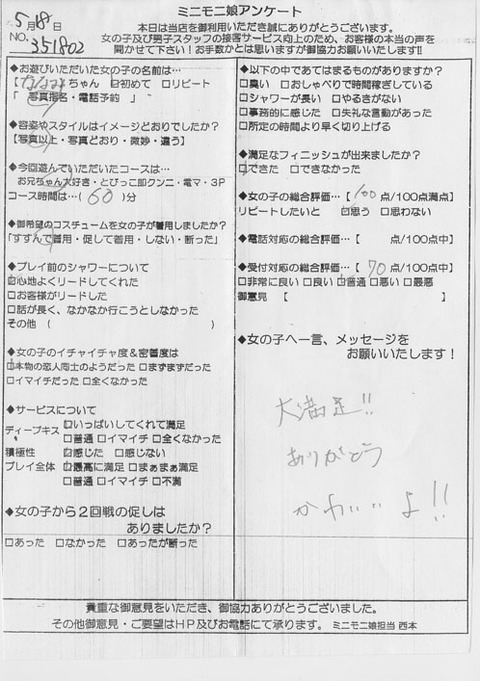 ミニモニ娘アンケート
5月8日
NO. 351802
本日は当店を御利用いただき誠にありがとうございます。
女の子及び男子スタッフの接客サービス向上のため、お客様の本当の声を
聞かせて下さい!お手数かとは思いますが御協力お願いいたします!!
◆お遊びいただいた女の子の名前は…
【 ちゃん □初めて □リピート
写真指名・電話予約 】
◆容姿やスタイルはイメージどおりでしたか?
【写真以上・写真どおり・微妙・違う】
◆今回遊んでいただいたコースは…
お兄ちゃん大好き・とびっこ即クンニ・電マ・3P
コース時間は…( 60 )分
◆御希望のコスチュームを女の子が着用しましたか?
「すすんで着用・促して着用・しない・断った」
◆プレイ前のシャワーについて
□心地よくリードしてくれた
□お客様がリードした
□話が長く、なかなか行こうとしなかった
その他( )
◆女の子のイチャイチャ度&密着度は
□本物の恋人同士のようだった □まずまずだった
□イマイチだった □全くなかった
◆サービスについて
ディープキス □いっぱいしてくれて満足
□普通 □イマイチ □全くなかった
積極性 □感じた □感じない
プレイ全体 □最高に満足 □まぁまぁ満足
□普通 □イマイチ □不満
◆女の子から2回戦の促しは
ありましたか?
□あった □なかった □あったが断った
◆以下の中であてはまるものがありますか?
□臭い □おしゃべりで時間稼ぎしている
□シャワーが長い □やるきがない
□事務的に感じた □失礼な言動があった
□所定の時間より早く切り上げる
◆満足なフィニッシュが出来ましたか?
□できた □できなかった
◆女の子の総合評価…【 100 点/100点満点】
リピートしたいと □思う □思わない
◆電話対応の総合評価…【 点/100点中】
◆受付対応の総合評価…【 70 点/100点中】
□非常に良い □良い □普通 □悪い □最悪
御意見 【 】
◆女の子へ一言、メッセージを
お願いいたします!
大満足!!
ありがとう
かわいいよ!!
貴重な御意見をいただき、御協力ありがとうございました。
その他御意見・ご要望はHP及びお電話にて承ります。 ミニモニ娘担当 西本